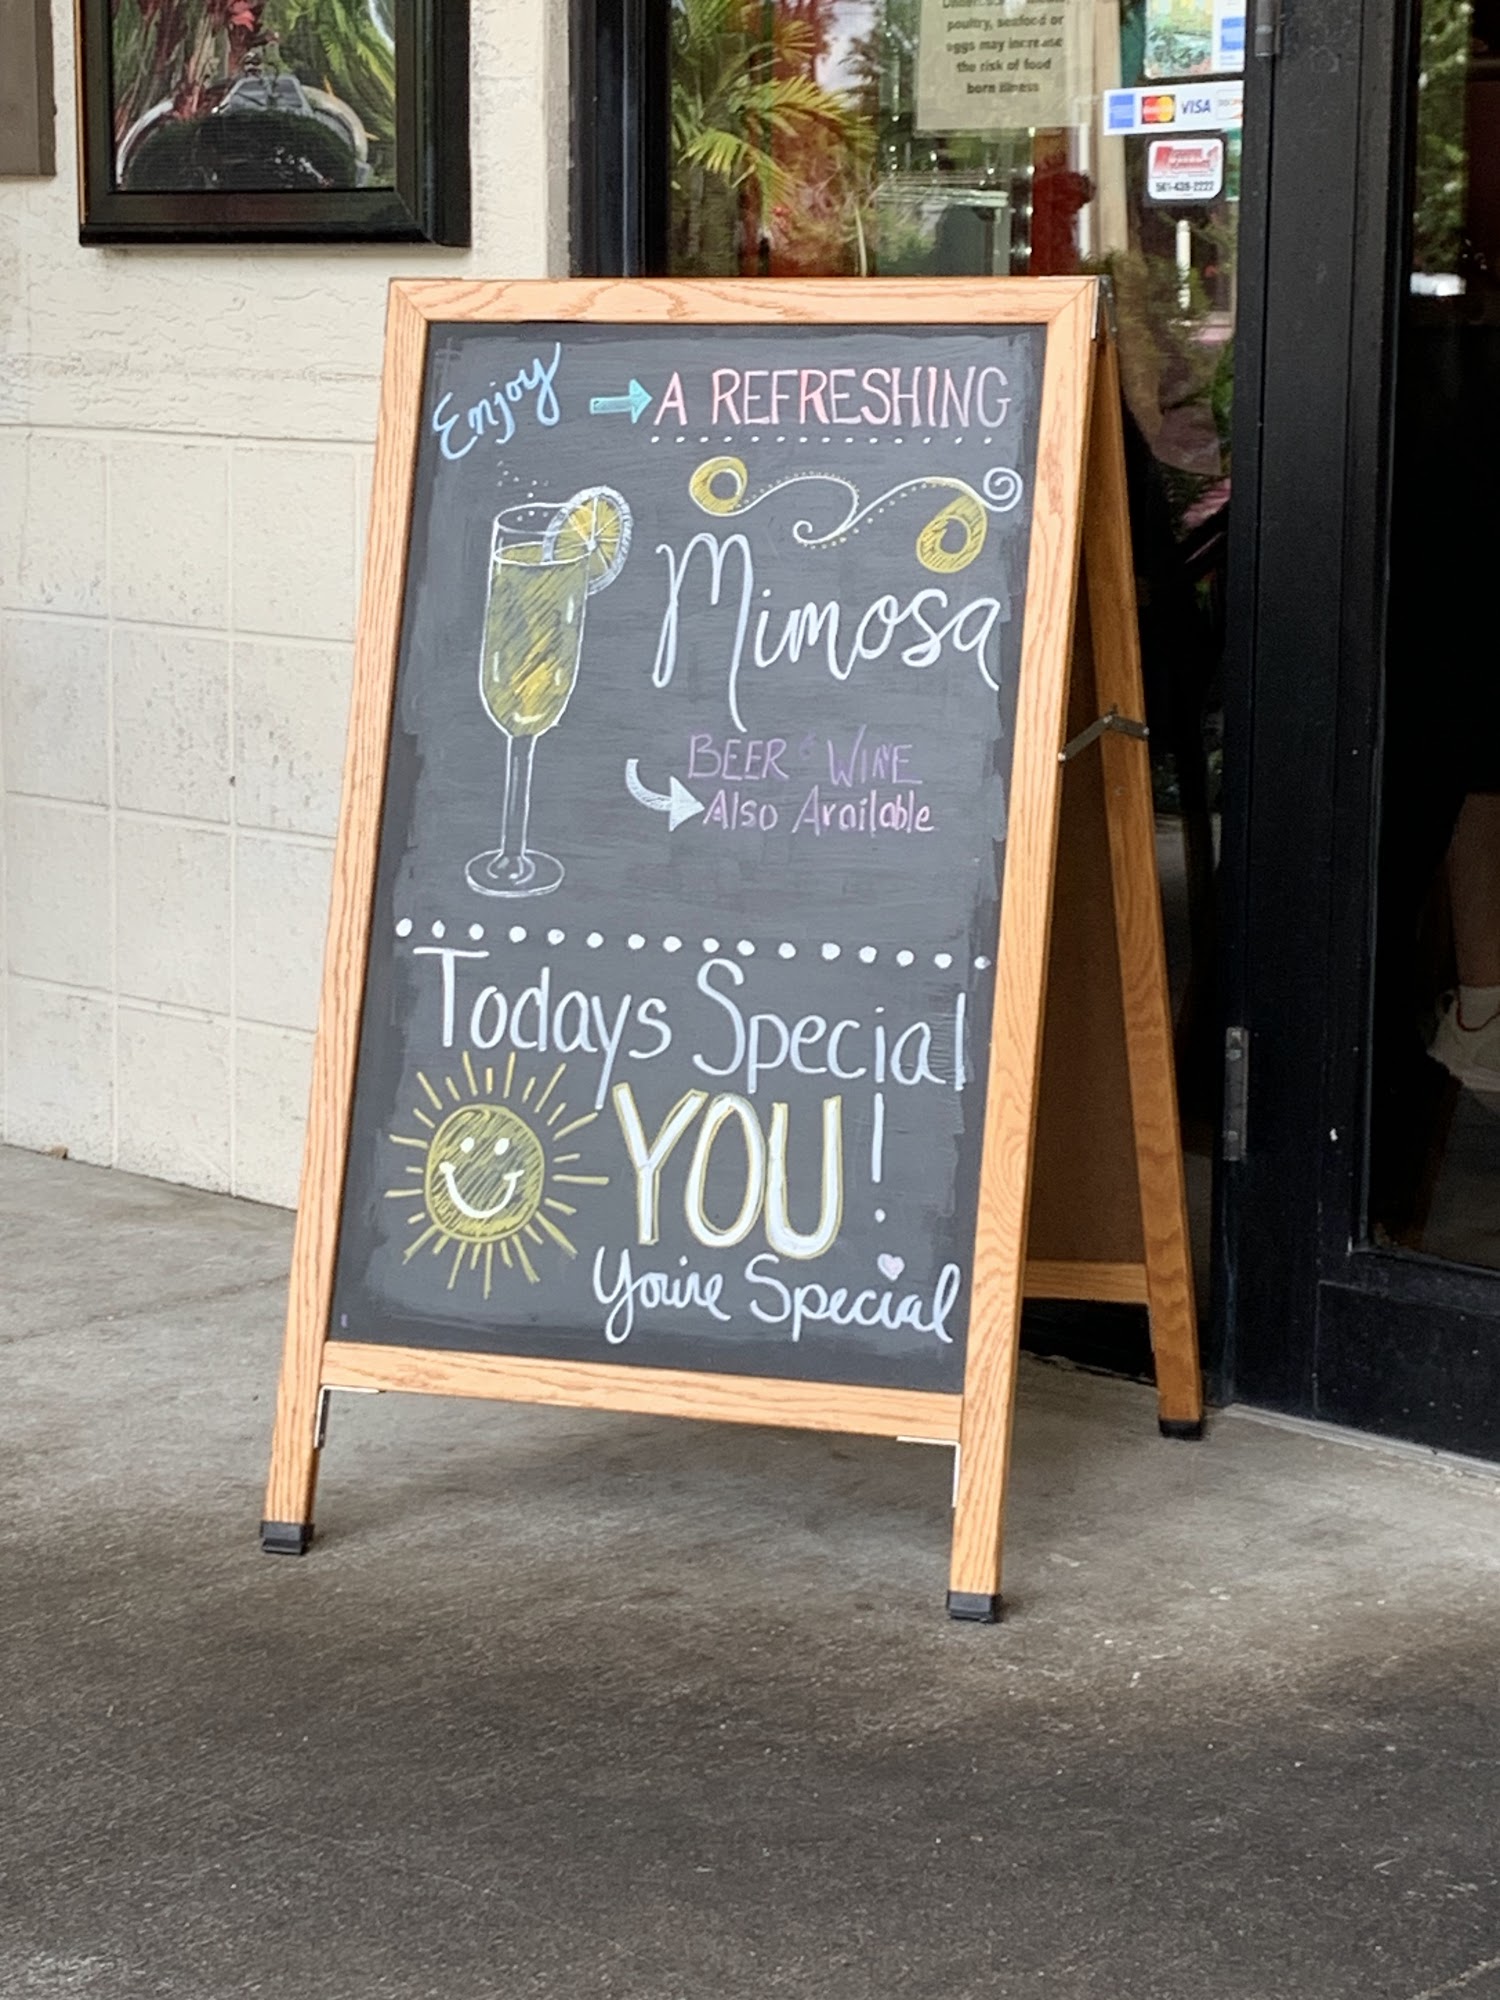 Enjoy → A REFRESHING
Mimosa
BEER & WINE
Also Available
Todays Special
YOU!
You're Special
poultry, seafood or
eggs may increase
the risk of food
born illness
VISA
561-439-2222